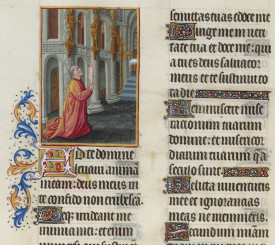 Ad te domine
levavi animam
meam: deus meus in
te confido non erubesca
Neq; irrideant me
inimici mei: et enim
semitas tuas edoce me
Dirige me in veri
tate tua et doce me: qui
a tu es deus salvator
meus et te sustinui to
ta die
Reminiscere mise
rationum tuarum
domine: et misericor
diarum tuarum que a
seculo sunt
Delicta iuventutis
mee et ignorantias
meas ne memineris